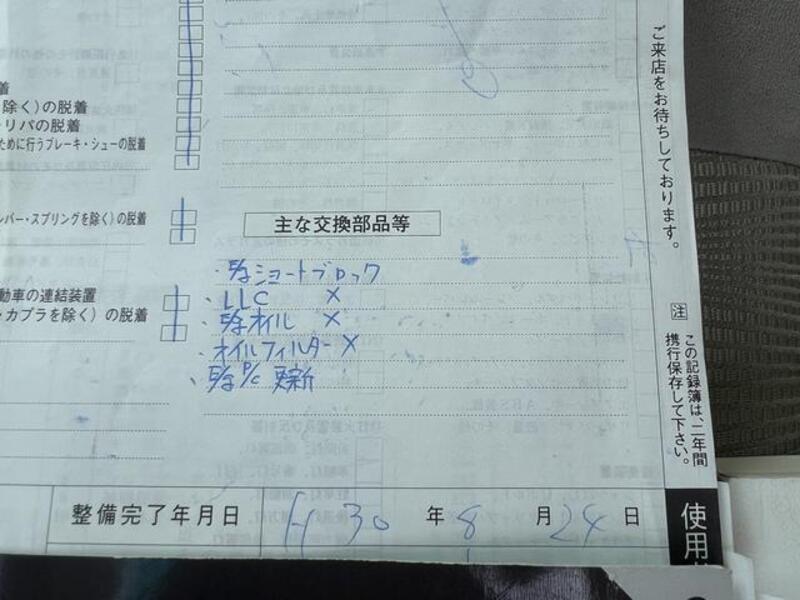 着
除く)の脱着
リパの脱着
ために行うブレーキ・シューの脱着
ンバー・スプリングを除く)の脱着
動車の連結装置
・カプラを除く)の脱着
主な交換部品等
・E/gショートブロック
・LLC ×
・E/gオイル ×
・オイルフィルター ×
・E/g P/C 更新
整備完了年月日 H30年8月24日
ご来店をお待ちしております。
注 この記録簿は、二年間
携行保存して下さい。
使用